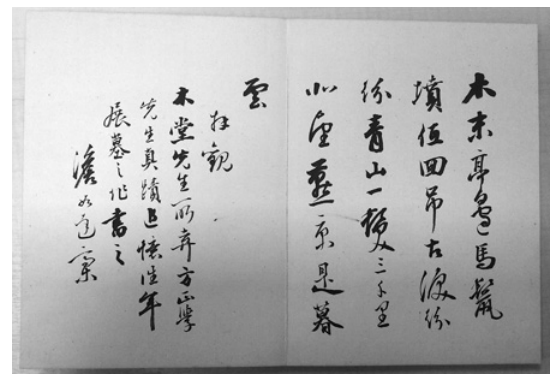 木末亭邊馬鬣
墳低回弔古淚紛
紛青山一髮三千里
北望燕京是暮
雲
拜觀
木堂先生所弆方正學
先生真蹟追懷往年
展墓之作書之